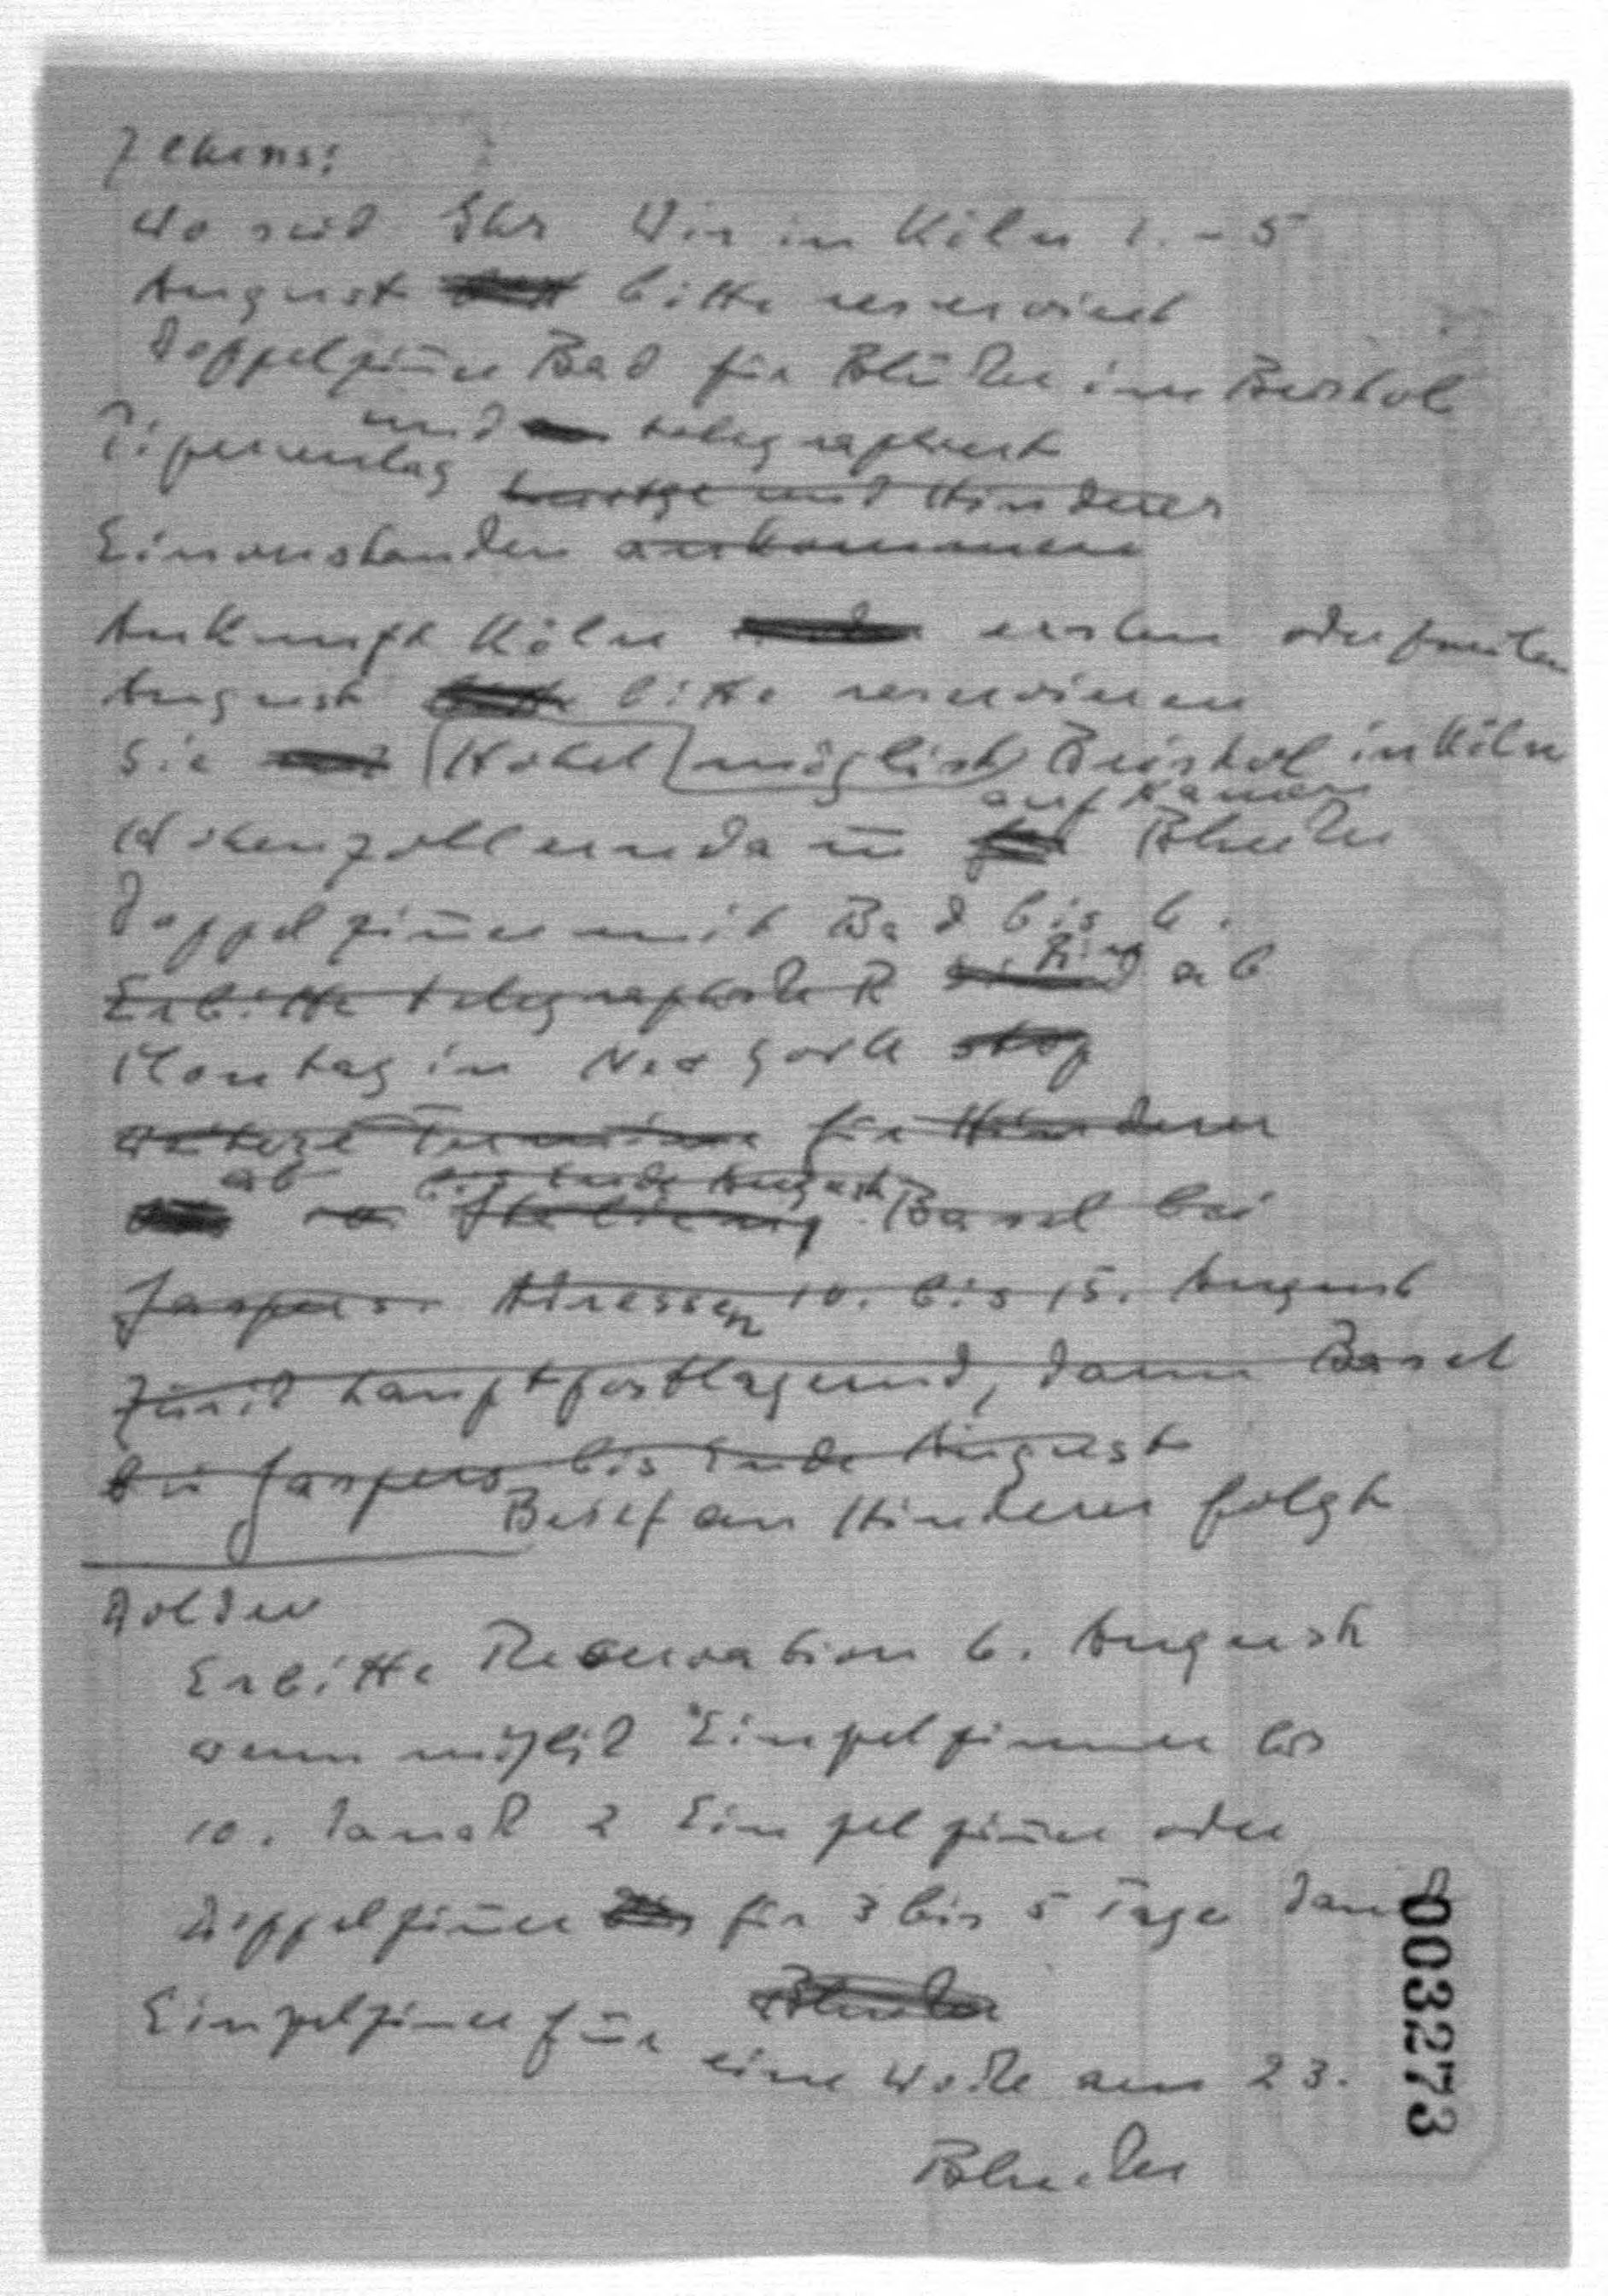 wo sind Ihr Wir in Köln 1. - 5
August bitte reserviert
Doppelzim̄er Bad für Blücher im Bristol
und telegraphiert
Piperverlag und Hinderer
Einverstanden ankommen
Ankunft Köln ersten oder zweiten
August bitte reservieren
Sie Hotel möglich Bristol in Köln
auf Namen
Hohenzollerndam̄ Bluecher
Doppelzim̄er mit Bad bis 6.
Erbitte telegraphische R ab
Montag in New York stop
weitere Termine für Hinderer
ab bis Ende August
Basel bei
Jaspers. Adressen 10. bis 15. August
Zürich hauptpostlagernd, dann Basel
bei Jaspers bis Ende August
Brief an Hinderer folgt
Dolder
Erbitte Reservation 6. August
wenn möglich Einzelzimmer bis
10. danach 2 Einzelzim̄er oder
Doppelzim̄er für 3 bis 5 Tage dann
Einzelzim̄er für Bluecher
eine Woche am 23.
Bluecher
003273